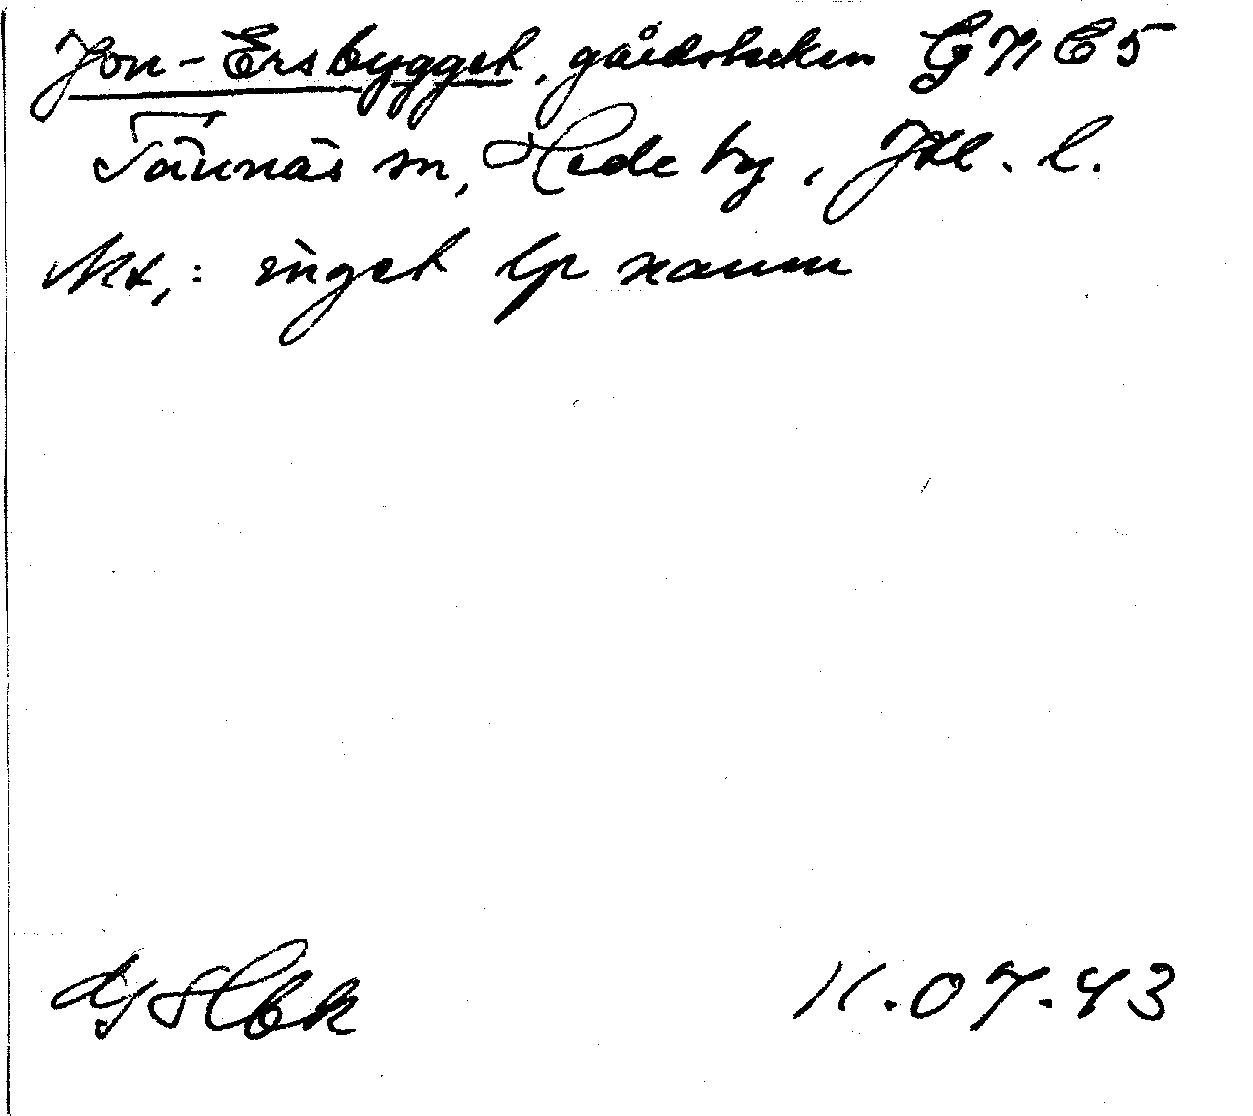 Jon-Ersbygget, gårdsbeken G7, E5
Tännäs sn, Hede by, Jtl. l.
Akt,: inget lp namn
Hbk K.07.43